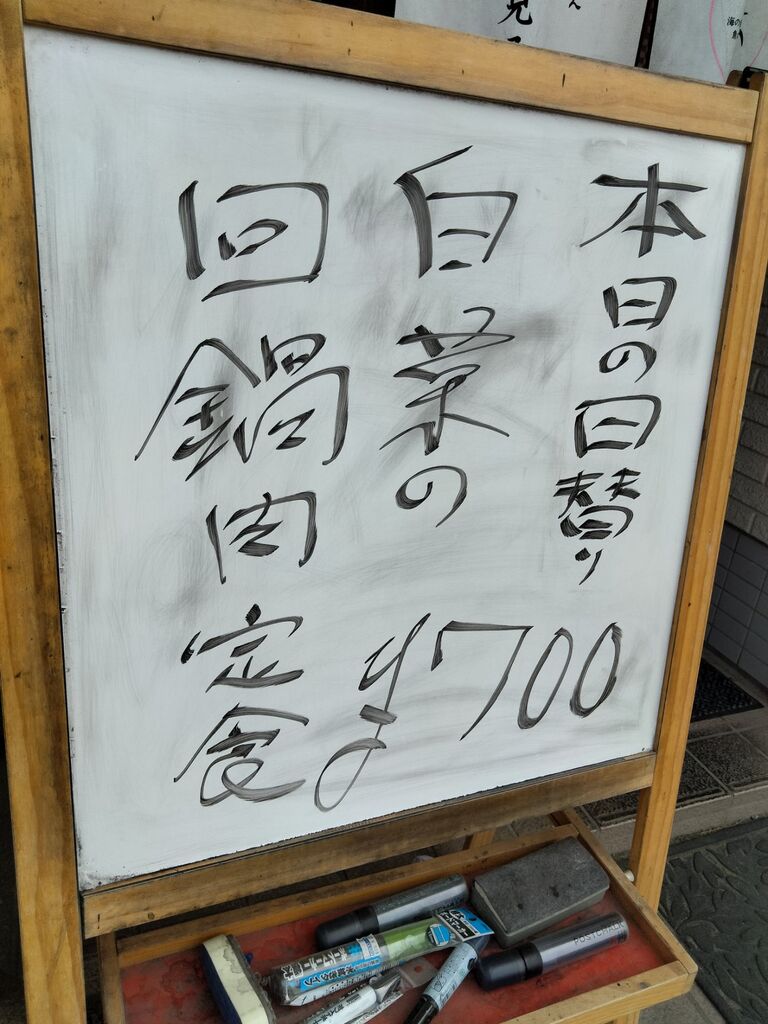 本日の日替り
白菜の
回鍋肉定食
¥700
POSTCHALK